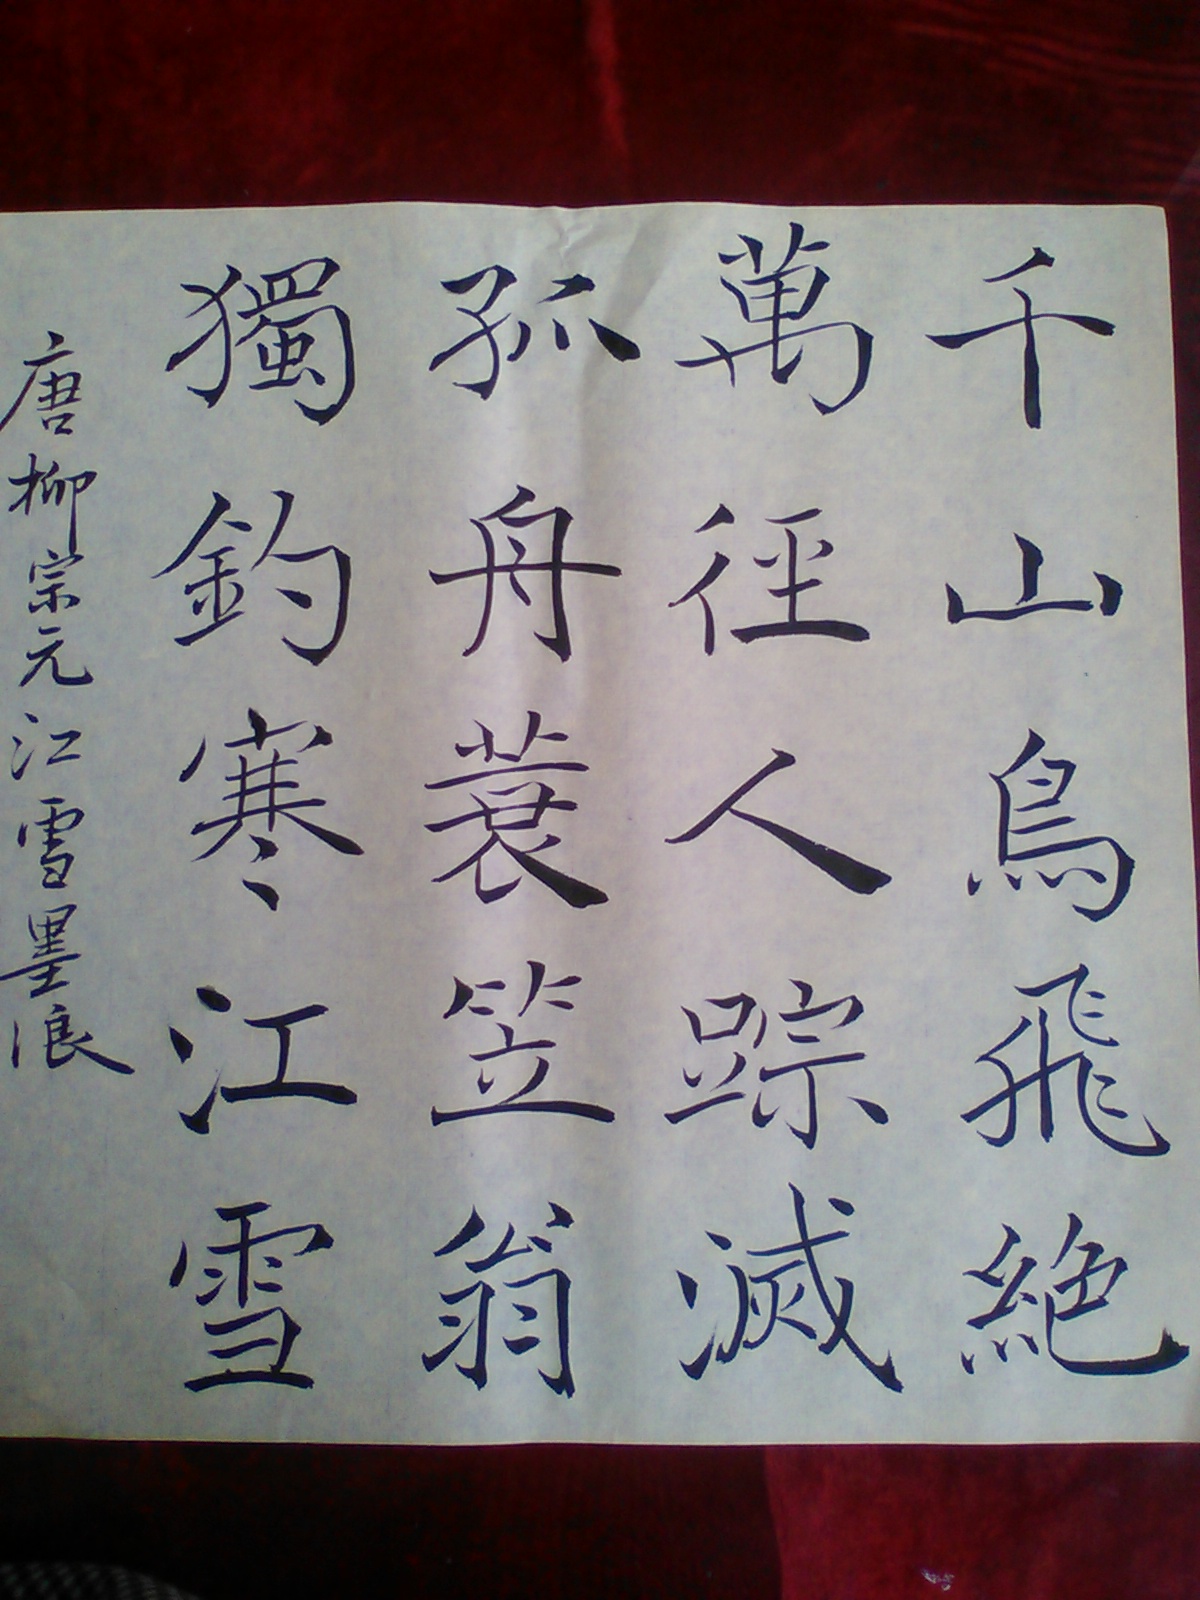 千山鳥飛絶
萬徑人踪滅
孤舟蓑笠翁
獨釣寒江雪
唐柳宗元江雪墨浪